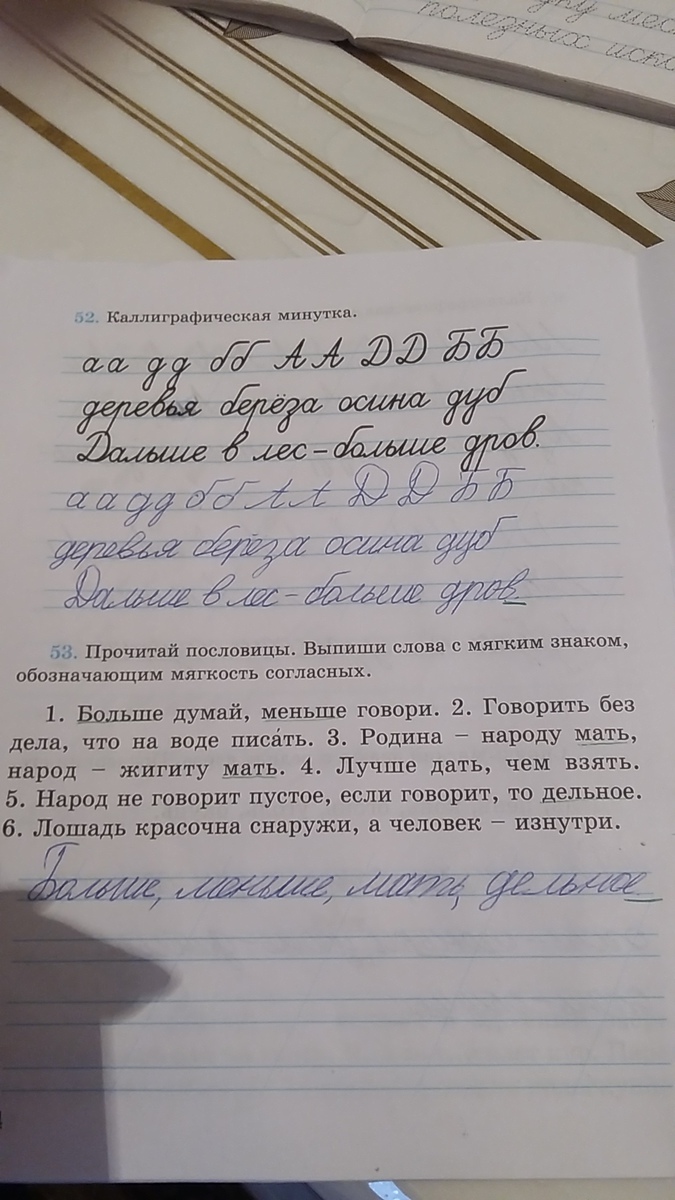 ду мес
полезных иско
52. Каллиграфическая минутка.
а а д д б б А А Д Д Б Б
деревья берёза осина дуб
Дальше в лес – больше дров.
а а д д б б А А Д Д Б Б
деревья берёза осина дуб
Дальше в лес – больше дров.
53. Прочитай пословицы. Выпиши слова с мягким знаком,
обозначающим мягкость согласных.
1. Больше думай, меньше говори. 2. Говорить без
дела, что на воде писа́ть. 3. Родина – народу мать,
народ – жигиту мать. 4. Лучше дать, чем взять.
5. Народ не говорит пустое, если говорит, то дельное.
6. Лошадь красочна снаружи, а человек – изнутри.
Больше, меньше, мать, дельное